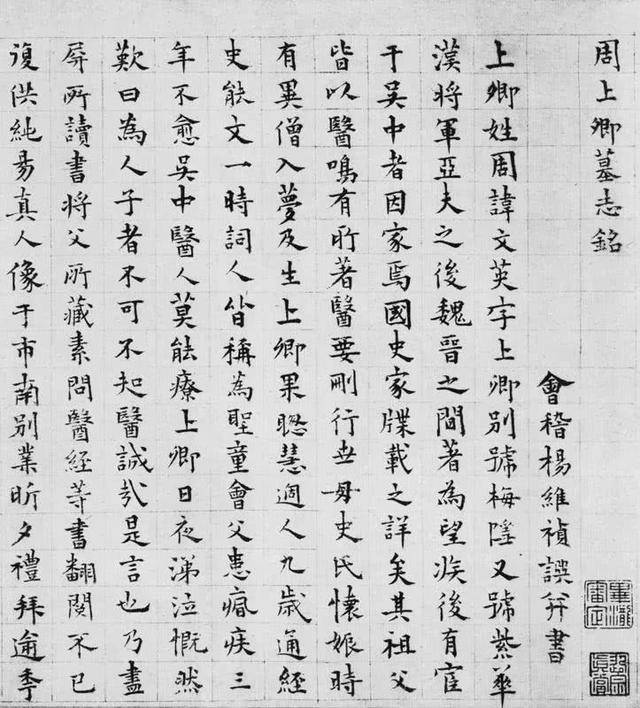 周上卿墓志銘
會稽楊維禎譔并書
上卿姓周諱文英字上卿別號梅隱又號紫華
漢將軍亞夫之後魏晉之間著為望族後有宦
于吳中者因家焉國史家牒載之詳矣其祖父
皆以醫鳴有所著醫要刪行世母史氏懷娠時
有異僧入夢及生上卿果聰慧過人九歲通經
史能文一時詞人皆稱為聖童會父患瘕疾三
年不愈吳中醫人莫能療上卿日夜涕泣慨然
歎曰為人子者不可不知醫誠哉是言也乃盡
屏所讀書將父所藏素問醫經等書翻閱不已
復供純昜真人像于市南別業昕夕禮拜逾季